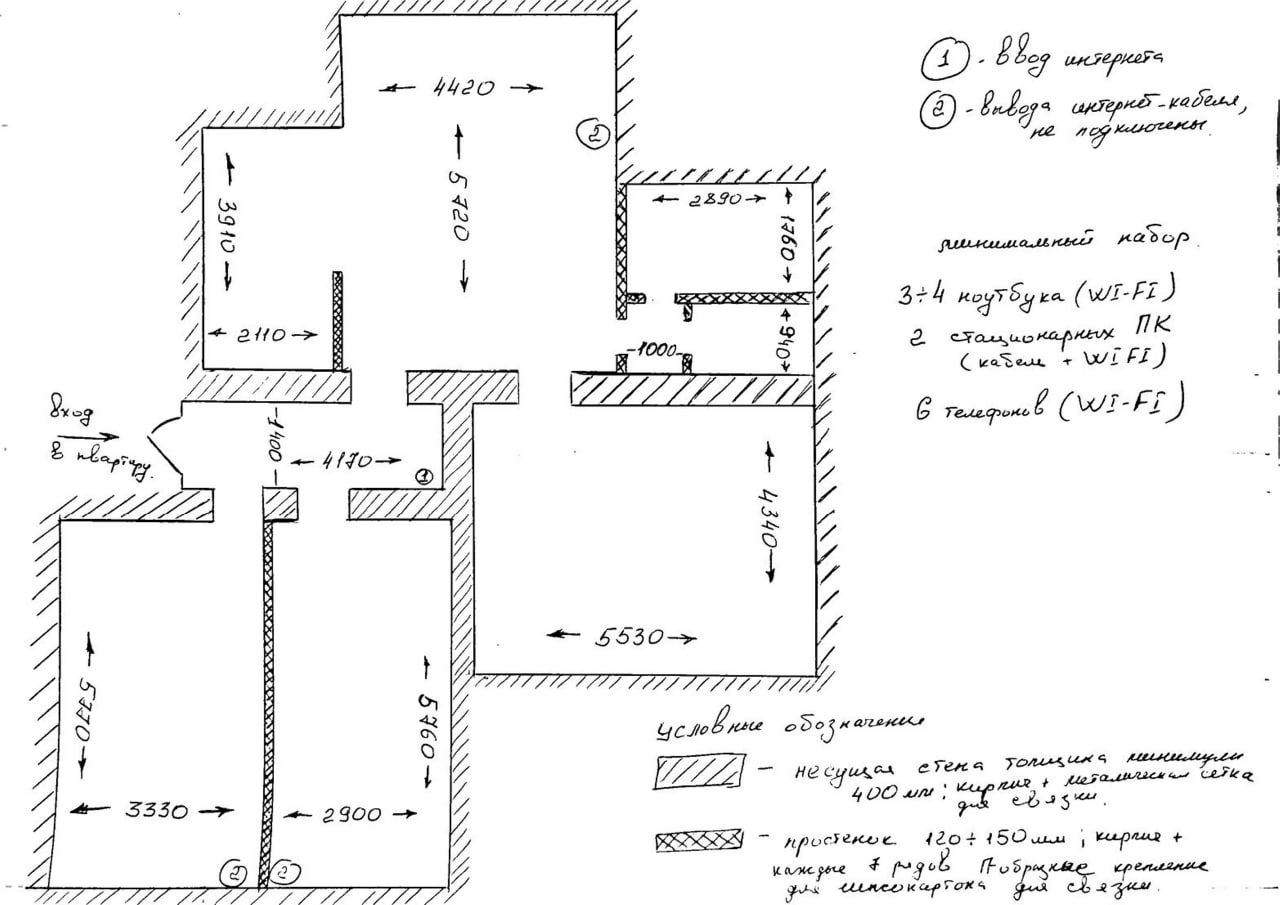 ① - ввод интернета
② - вывода интернет-кабеля,
не подключены.
4420
②
5720
3910
2110
2890
1760
940
-1000-
минимальный набор.
3÷4 ноутбука (WI-FI)
2 стационарных ПК
(кабель + WI FI)
6 телефонов (WI-FI)
вход
в квартиру.
-1400-
4170
①
4340
5530
5770
5760
3330
2900
②
②
условные обозначение
- несущая стена толщина минимум
400 мм; кирпич + металическая сетка
для связки.
- простенок 120÷150 мм; кирпич +
каждые 7 рядов П образные крепление
для для связки.